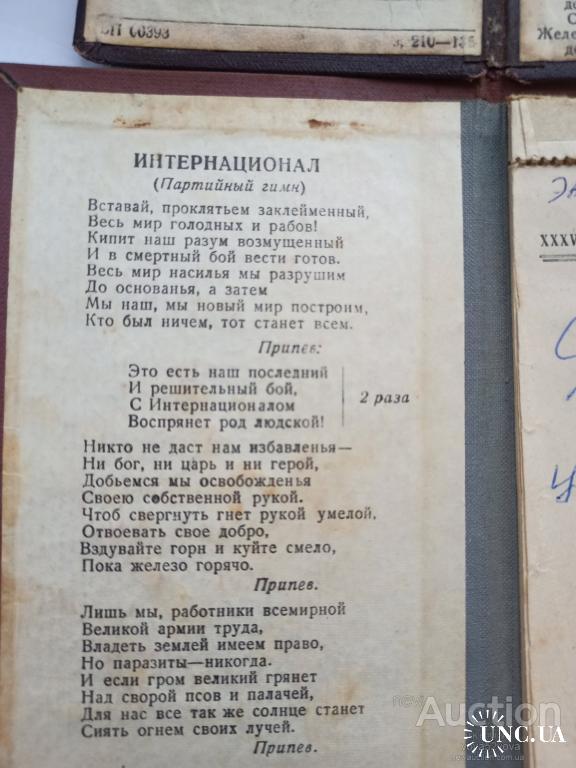 БП 00393
з. 210—135
до
С
Желе
де
ИНТЕРНАЦИОНАЛ
(Партийный гимн)
Вставай, проклятьем заклейменный,
Весь мир голодных и рабов!
Кипит наш разум возмущенный
И в смертный бой вести готов.
Весь мир насилья мы разрушим
До основанья, а затем
Мы наш, мы новый мир построим,
Кто был ничем, тот станет всем.
Припев:
Это есть наш последний
И решительный бой,
С Интернационалом
Воспрянет род людской!
2 раза
Никто не даст нам избавленья—
Ни бог, ни царь и ни герой,
Добьемся мы освобожденья
Своею собственной рукой.
Чтоб свергнуть гнет рукой умелой,
Отвоевать свое добро,
Вздувайте горн и куйте смело,
Пока железо горячо.
Припев.
Лишь мы, работники всемирной
Великой армии труда,
Владеть землей имеем право,
Но паразиты—никогда.
И если гром великий грянет
Над сворой псов и палачей,
Для нас все так же солнце станет
Сиять огнем своих лучей.
Припев.
XXXV
Auction
UNC.UA